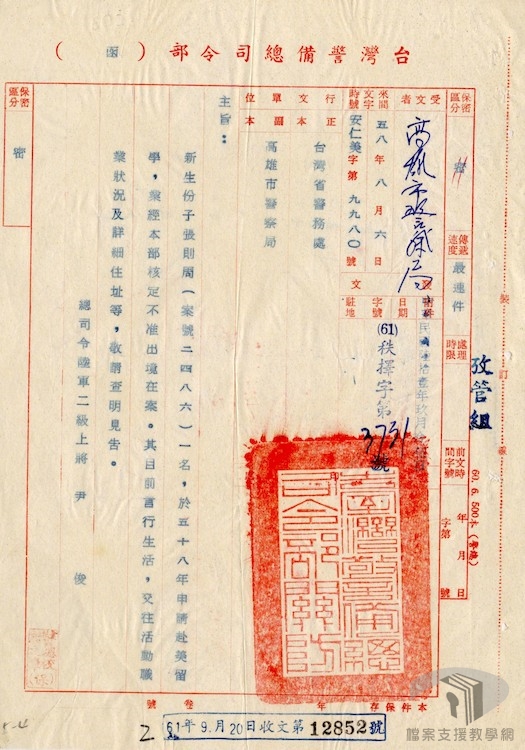 台灣警備總司令部（函）
保密區分
密
傳遞速度
最速件
處理時限
前文時間字號
年 月 日
字第 號
裝 訂
攷管組
60.6.500本
受文者
高雄市警察局
來文時間字號
五八年八月六日
安仁美字第九九八〇號
行文單位
正本
台灣省警務處
副本
高雄市警察局
發文
日期
字號
駐地
(61)秩擇字第3731號
主旨：
新生份子張則周（案號二四八六）一名，於五十八年申請赴美留
學，業經本部核定不准出境在案。其目前言行生活，交往活動職
業狀況及詳細住址等，敬請查明見告。
總司令陸軍二級上將尹 俊
保密區分
密
本件保存 年
卷 號
2.
61年9月20日收文第12852號
檔案支援教學網